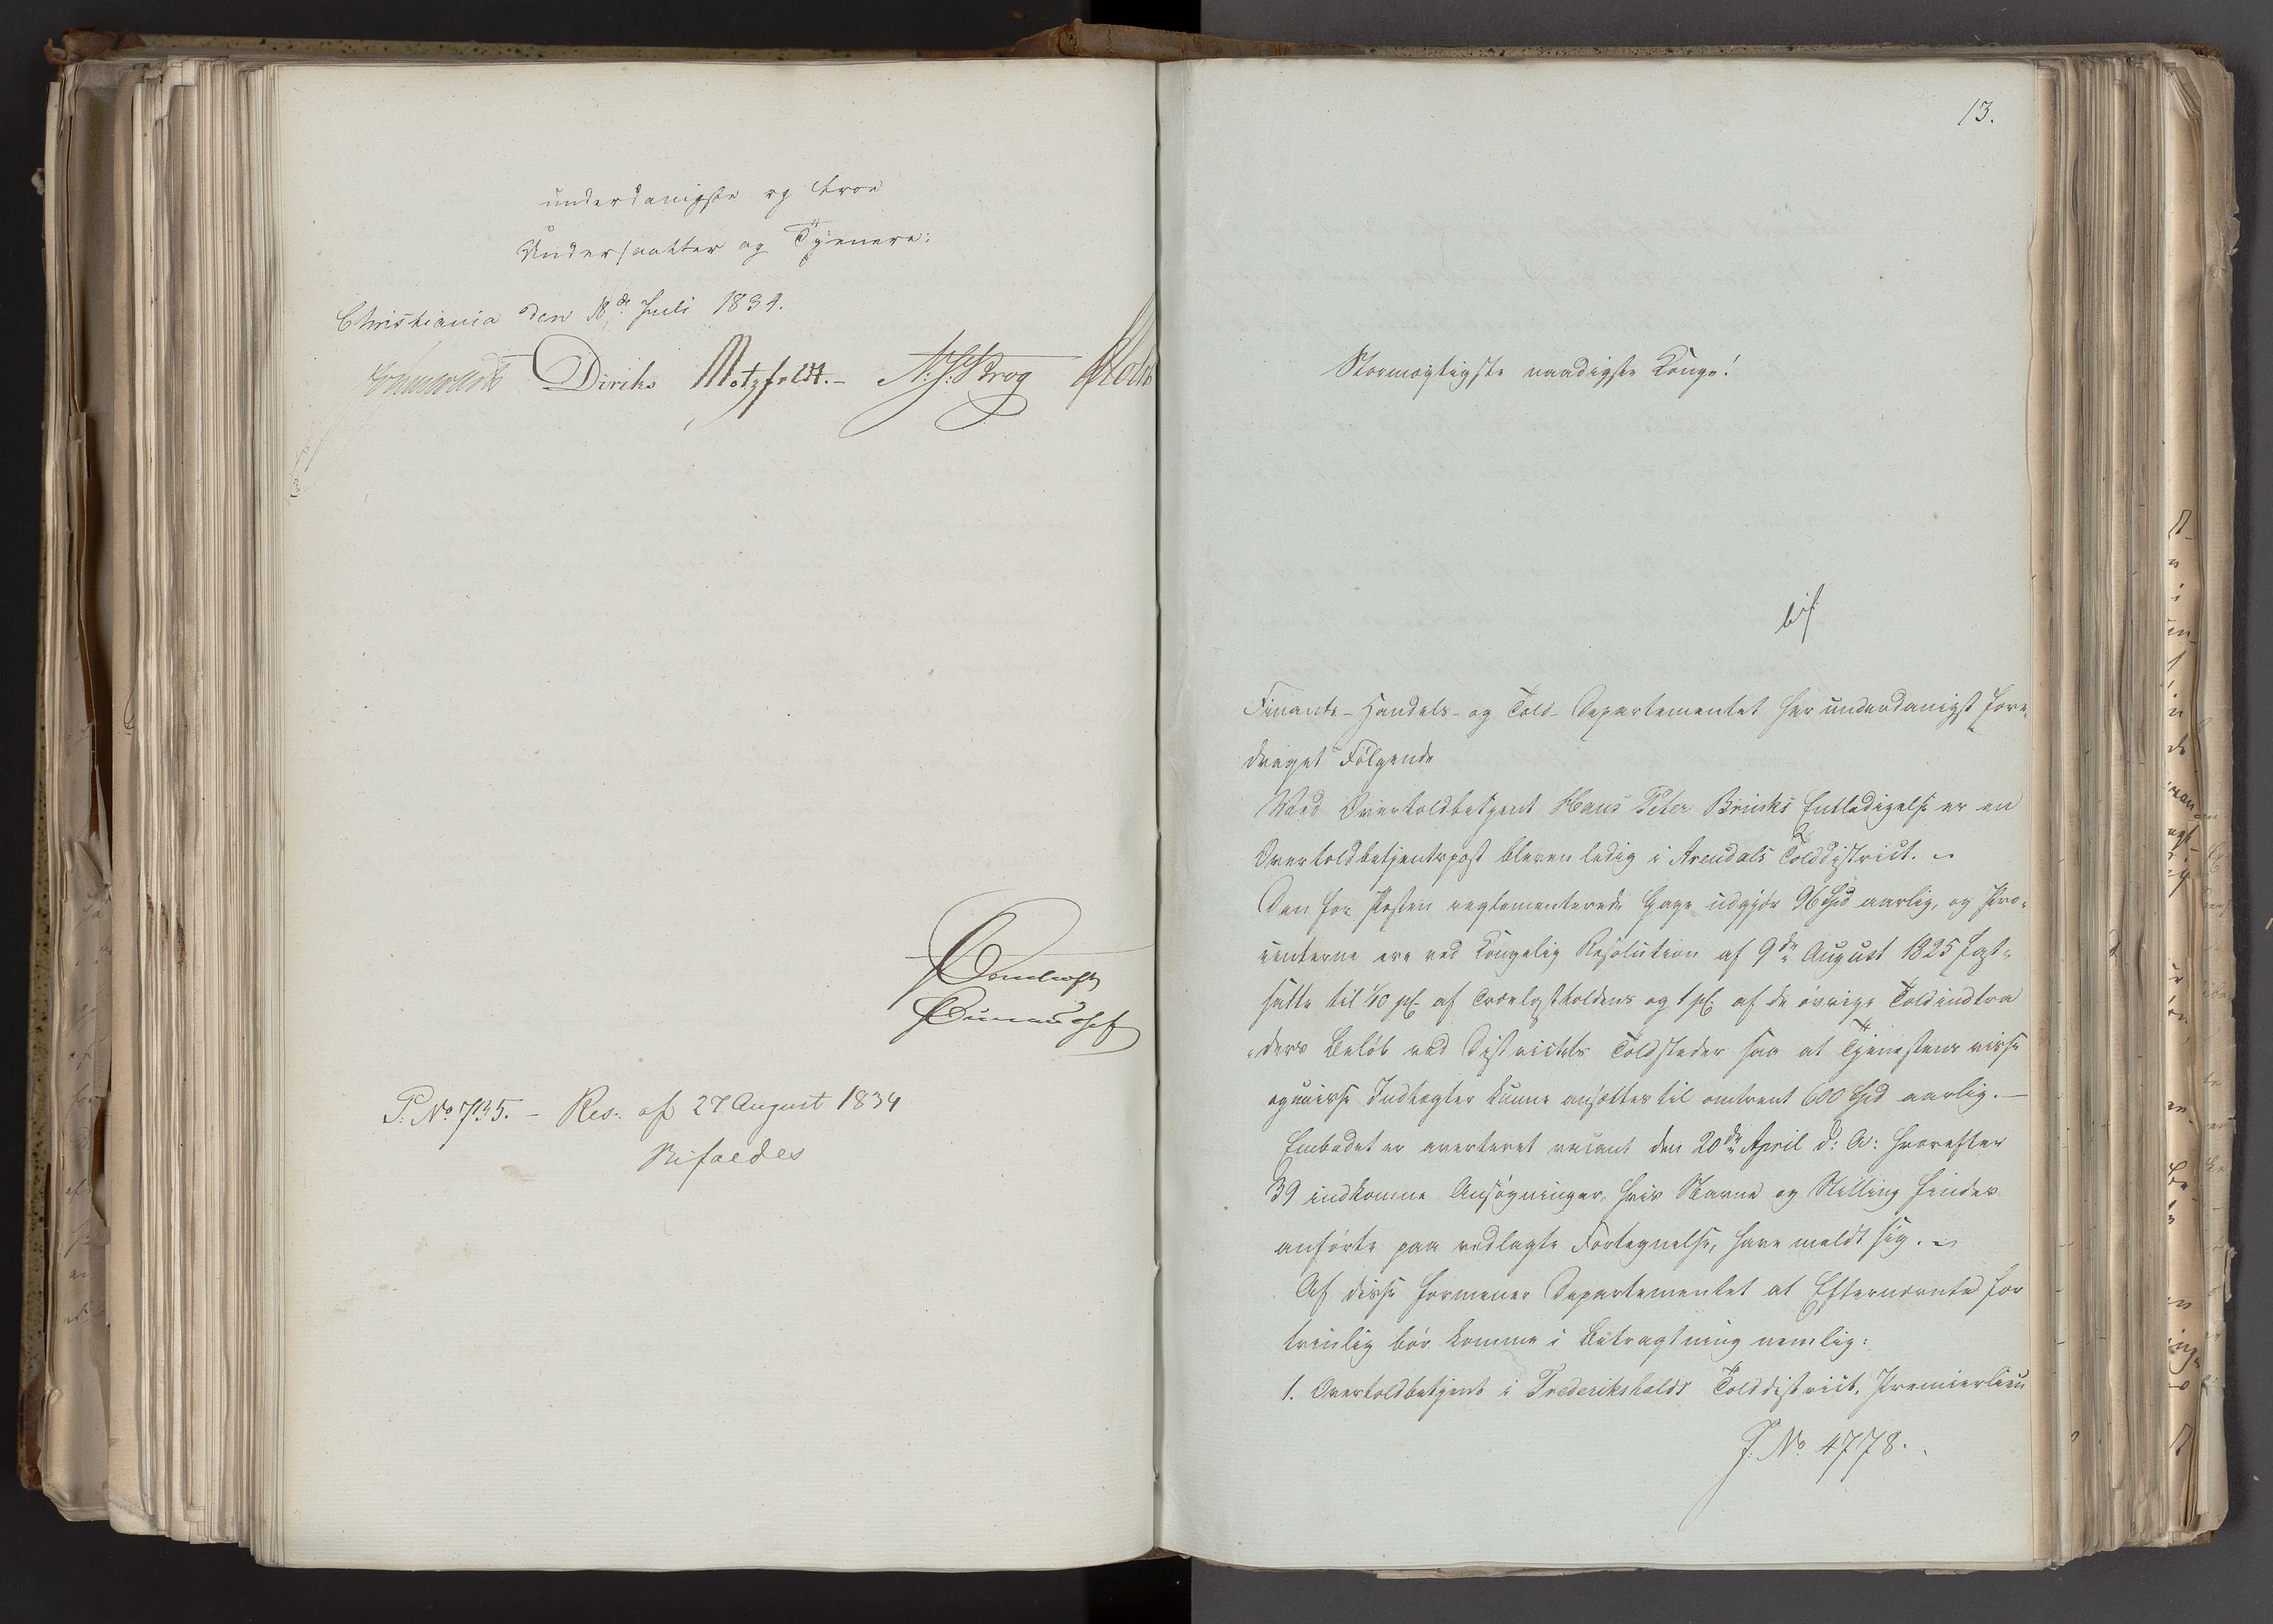 underdanigste og troe
Undersaatter og Tjenere:
Christiania den 18de Juli 1834.
Diriks Motzfeldt. - N: J: Krog Holst
P: No 735. - Res: af 27 August 1834
Bifaldes
13.
Stormægtigste naadigste Konge!
bif
Finants- Handels- og Told- Departementet har underdanigst fore-
draget Følgende
Ved Overtoldbetjent Hans Peter Brinchs Entledigelse er en
Overtoldbetjentspost bleven ledig i Arendals Tolddistrict. -
Den for Posten reglementerede Gage udgjør 96 Spd aarlig, og Pro-
centerne ere ved Kongelig Resolution af 9de August 1825 fast-
satte til 1/10 pC. af Trælasttoldens og 1 pC. af de øvrige Toldindtra
ders Beløb ved Districtets Toldsteder saa at Tjenestens visse
og uvisse Indtægter kunne ansættes til omtrent 600 Spd aarlig. -
Embedet er averteret vacant den 20de April d: A: hvorefter
39 indkomne Ansøgninger, hvis Navne og Stilling findes
anførte paa vedlagte Fortegnelse, have meldt sig. -
Af disse formener Departementet at Efternævnte for
trinlig bør komme i Betragtning nemlig:
1. Overtoldbetjent i Frederikshalds Tolddistrict, Premierlieu
J. No 4778.